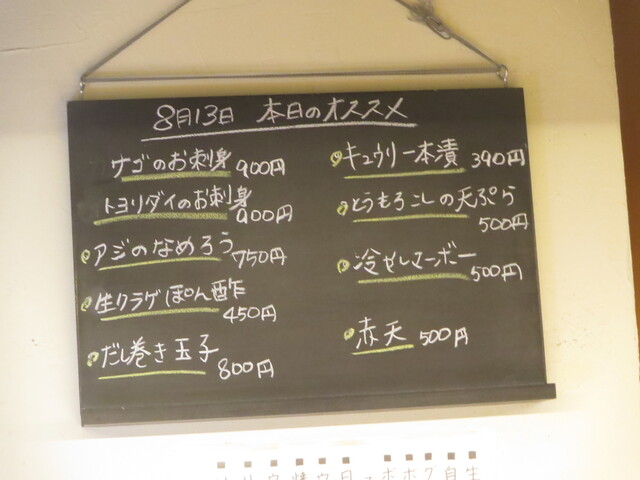 8月13日 本日のオススメ
サゴのお刺身 900円
トヨリダイのお刺身 900円
アジのなめろう 750円
生クラゲぽん酢 450円
だし巻き玉子 800円
キュウリ一本漬 390円
とうもろこしの天ぷら 500円
冷やしマーボー 500円
赤天 500円